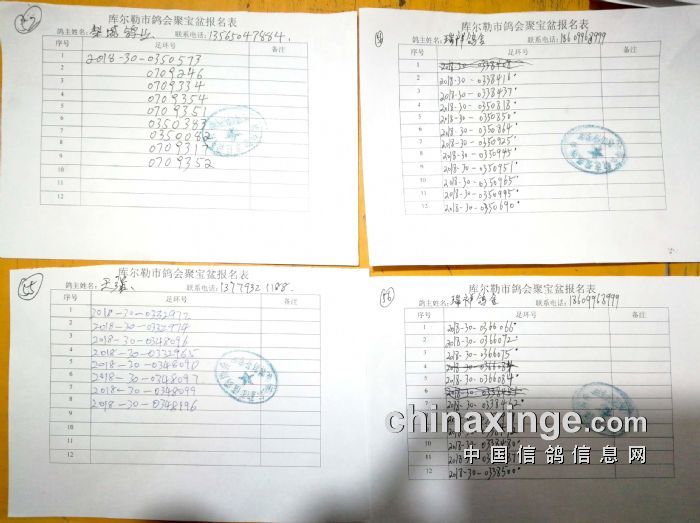 库尔勒市鸽会聚宝盆报名表
鸽主姓名: 鸽业 联系电话: 13565047884.
序号 足环号 备注
1 2018-30-0350573
2 0709246
3 0709334
4 0709354
5 0709351
6 0350383
7 0350082
8 0709317
9 0709352
10
11
12
库尔勒市鸽会聚宝盆报名表
鸽主姓名: 瑞祥鸽舍 联系电话: 13609968999
序号 足环号 备注
1
2 2018-30-0338416
3 2018-30-0338437
4 2018-30-0350818
5 2018-30-0350850
6 2018-30-0350864
7 2018-30-0350925
8 2018-30-0350945
9 2018-30-0350951
10 2018-30-0350965
11 2018-30-0350995
12 2018-30-0350690
55
库尔勒市鸽会聚宝盆报名表
鸽主姓名: 联系电话: 13779321188.
序号 足环号 备注
1 2018-30-0332972
2 2018-30-0332974
3 2018-30-0348096
4 2018-30-0332965
5 2018-30-0348090
6 2018-30-0348097
7 2018-30-0348099
8 2018-30-0348996
9
10
11
12
56
库尔勒市鸽会聚宝盆报名表
鸽主姓名: 瑞祥鸽舍 联系电话: 13609968999
序号 足环号 备注
1 2018-30-0366066
2 2018-30-0366072
3 2018-30-0366075
4
5 2018-30-0366084
6
7
10
11
12 2018-30-0338500
chinaxinge.com
中国信鸽信息网